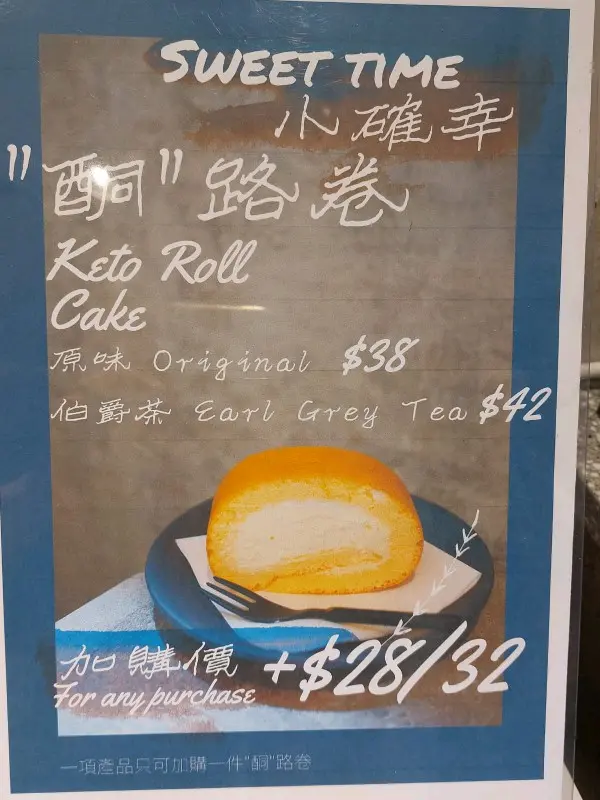 SWEET TIME
小確幸
"酮"路卷
Keto Roll
Cake
原味 Original $38
伯爵茶 Earl Grey Tea $42
加購價 +$28/32
For any purchase
一項產品只可加購一件"酮"路卷